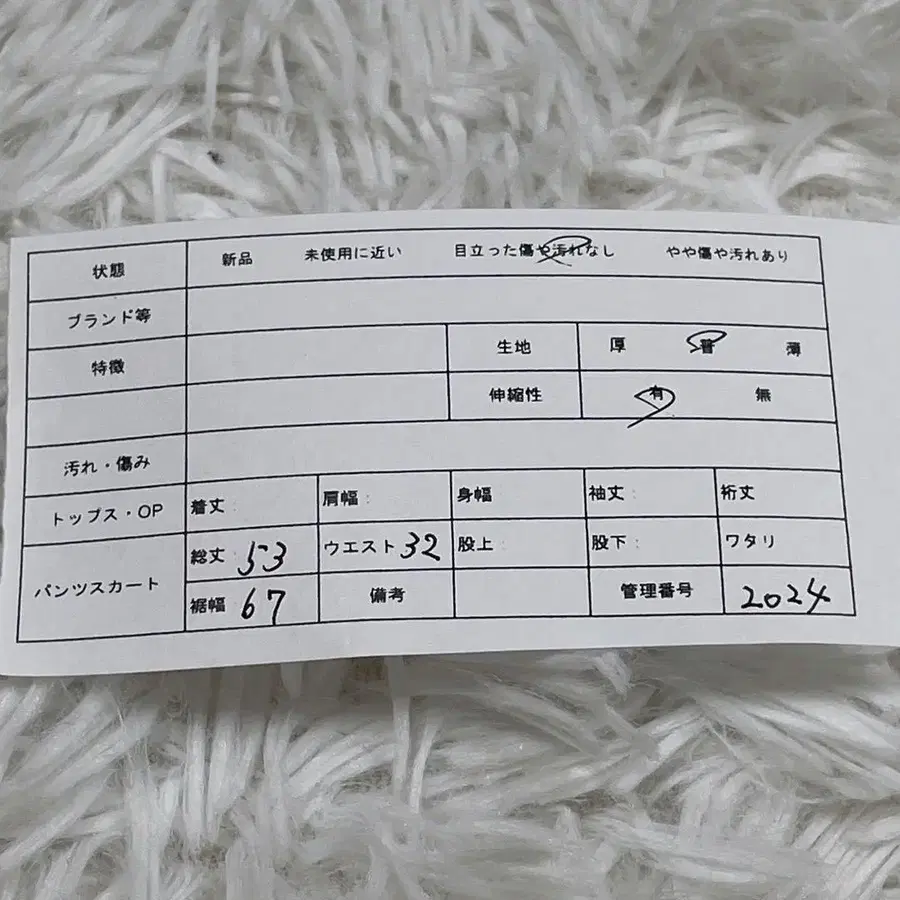 状態 新品 未使用に近い 目立った傷や汚れなし やや傷や汚れあり
ブランド等
特徴 生地 厚 普 薄
伸縮性 有 無
汚れ・傷み
トップス・OP 着丈: 肩幅: 身幅 袖丈: 裄丈
パンツスカート 総丈: 53 ウエスト 32 股上: 股下: ワタリ
裾幅 67 備考 管理番号 2024